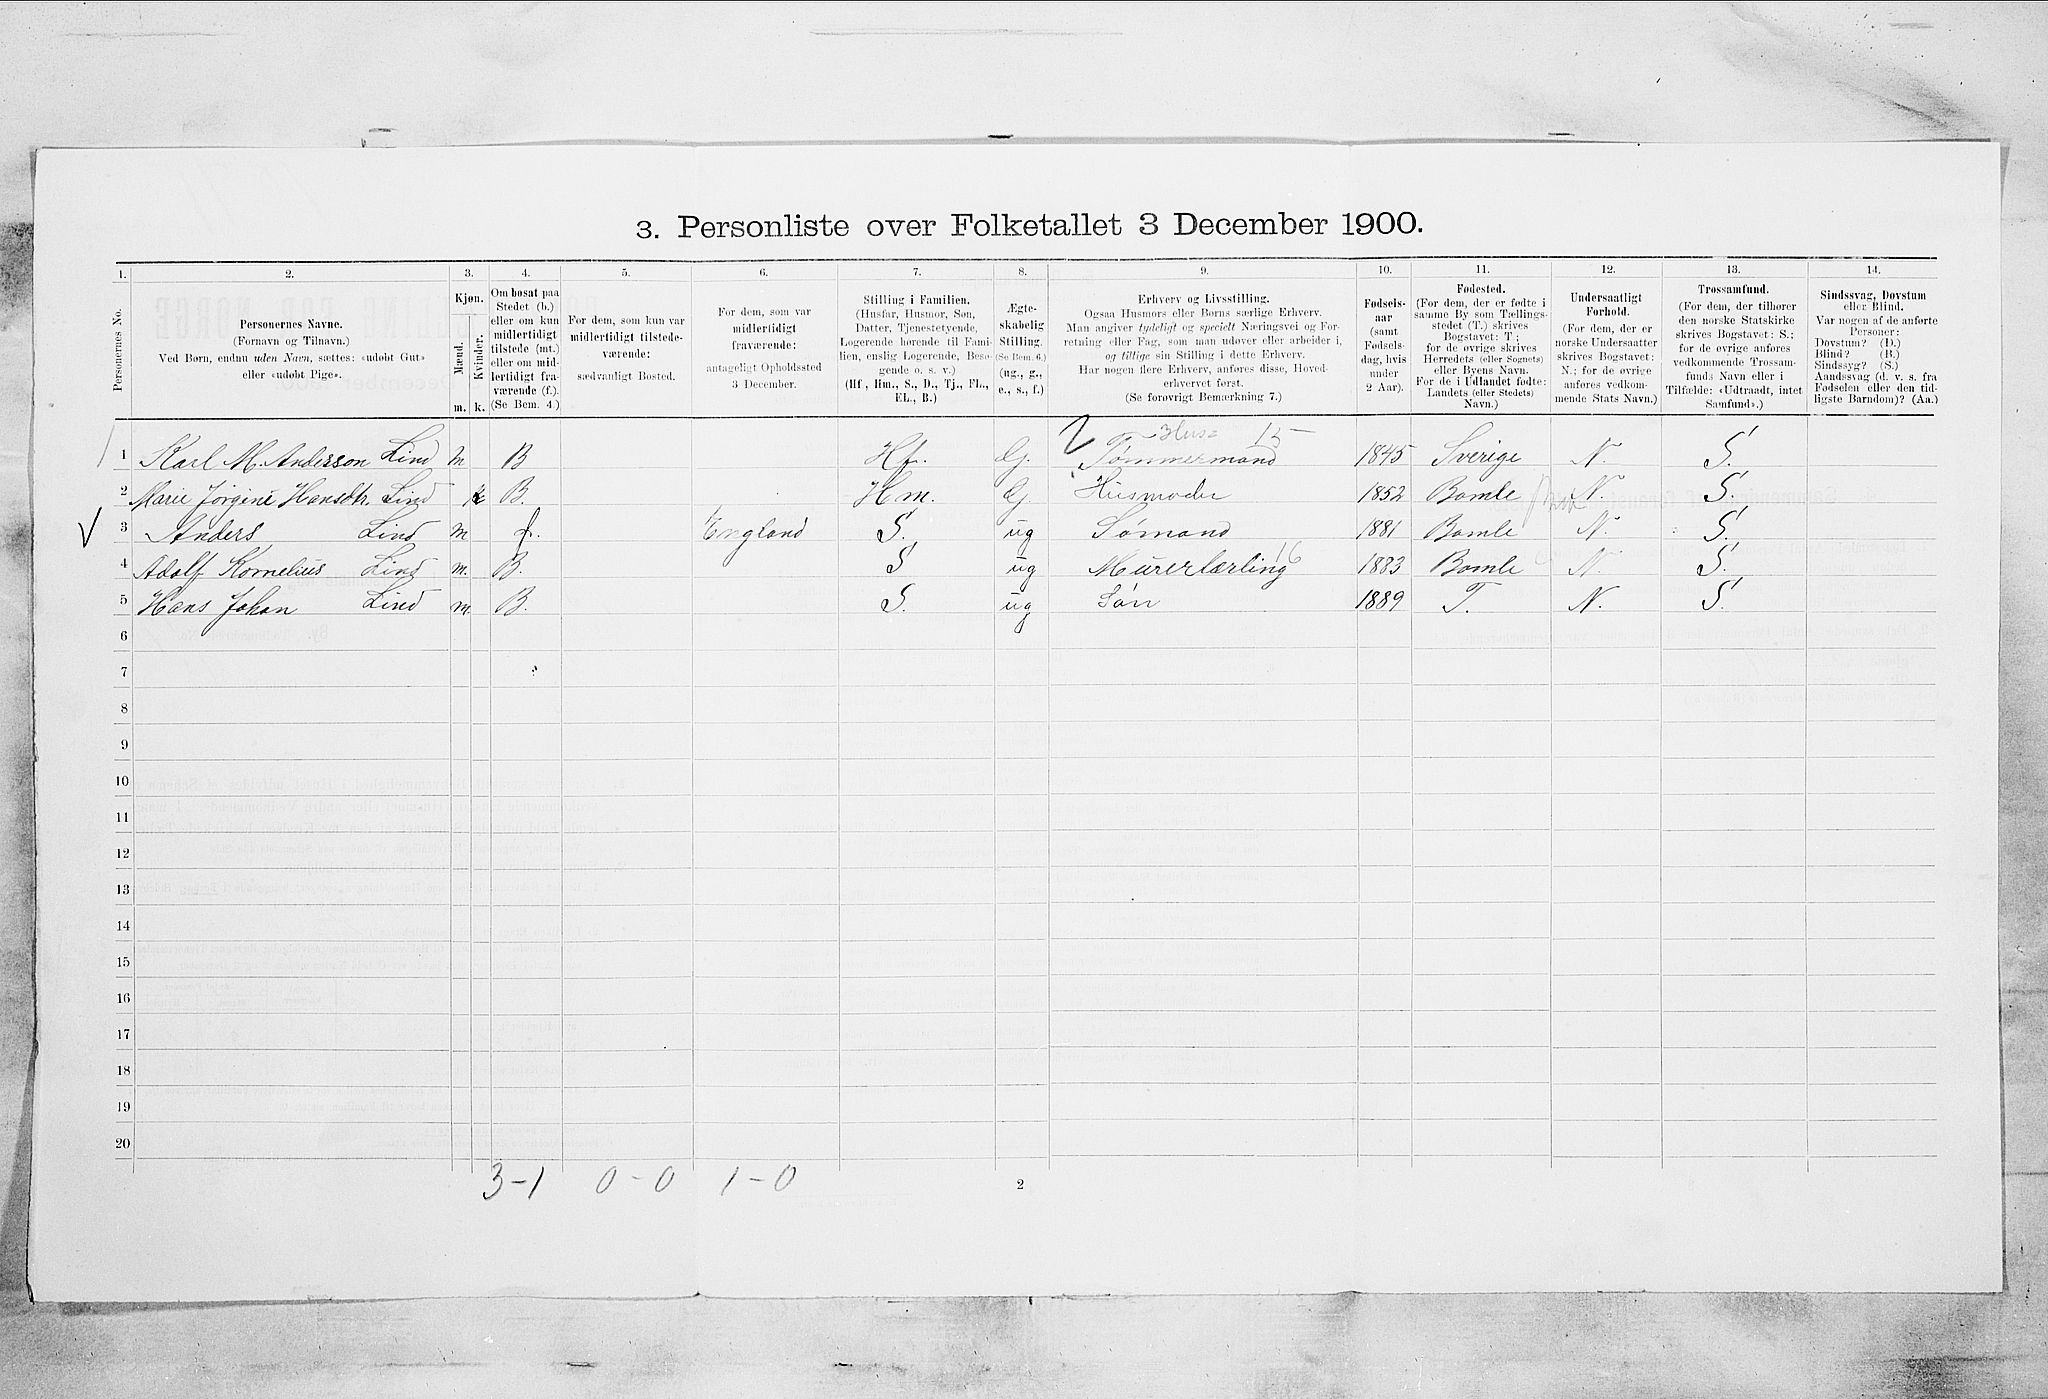 3. Personliste over Folketallet 3 December 1900.
1. 2. 3. 4. 5. 6. 7. 8. 9. 10. 11. 12. 13. 14.
Personernes No.
Personernes Navne.
(Fornavn og Tilnavn.)
Ved Børn, endnu uden Navn, sættes: «udøbt Gut»
eller «udøbt Pige».
Kjøn.
Mænd.
Kvinder.
m. k.
Om bosat paa
Stedet (b.)
eller om kun
midlertidigt
tilstede (mt.)
eller om mid-
lertidigt fra-
værende (f.).
(Se Bem. 4.)
For dem, som kun var
midlertidigt tilstede-
værende:
sædvanligt Bosted.
For dem, som var
midlertidigt
fraværende:
antageligt Opholdssted
3 December.
Stilling i Familien.
(Husfar, Husmor, Søn,
Datter, Tjenestetyende,
Logerende hørende til Fami-
lien, enslig Logerende, Besø-
gende o. s. v.)
(Hf., Hm., S., D., Tj., Fl.,
EL., B.)
Ægte-
skabelig
Stilling.
(Se Bem. 6.)
(ug., g.,
e., s., f.)
Erhverv og Livsstilling.
Ogsaa Husmors eller Børns særlige Erhverv.
Man angiver tydeligt og specielt Næringsvei og For-
retning eller Fag, som man udøver eller arbeider i,
og tillige sin Stilling i dette Erhverv.
Har nogen flere Erhverv, anføres disse, Hoved-
erhvervet først.
(Se forøvrigt Bemærkning 7.)
Fødsels-
aar
(samt
Fødsels-
dag, hvis
under
2 Aar).
Fødested.
(For dem, der er fødte i
samme By som Tællings-
stedet (T.) skrives
Bogstavet: T;
for de øvrige skrives
Herredets (eller Sognets)
eller Byens Navn.
For de i Udlandet fødte:
Landets (eller Stedets)
Navn.)
Undersaatligt
Forhold.
(For dem, der er
norske Undersaatter
skrives Bogstavet:
N.; for de øvrige
anføres vedkom-
mende Stats Navn.)
Trossamfund.
(For dem, der tilhører
den norske Statskirke
skrives Bogstavet: S.;
for de øvrige anføres
vedkommende Trossam-
funds Navn eller i
Tilfælde: «Udtraadt, intet
Samfund».)
Sindssvag, Døvstum
eller Blind.
Var nogen af de anførte
Personer:
Døvstum? (D.)
Blind? (B.)
Sindssyg? (S.)
Aandssvag (d. v. s. fra
Fødselen eller den tid-
ligste Barndom)? (Aa.)
Hus= 15
1 Karl M. Anderson Lind m B Hf. G. Tømmermand 1845 Sverige N. S.
2 Marie Jørgine Hansdtr. Lind k B. Hm. G. Husmoder 1852 Bamle N. S.
3 Anders Lind m f. England S. ug Sømand 1881 Bamle N. S.
4 Adolf Kornelius Lind m. B. S ug Murerlærling 16 1883 Bamle N. S.
5 Hans Johan Lind m. B. S. ug Søn 1889 T. N. S.
6
7
8
9
10
11
12
13
14
15
16
17
18
19
20
3-1 0-0 1-0
2